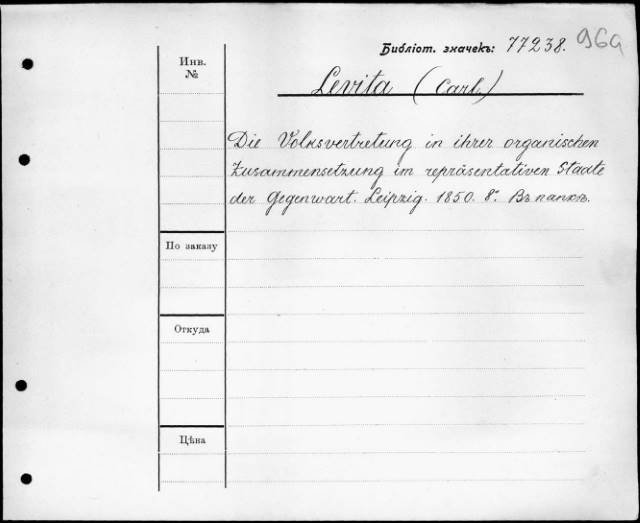 Библіот. значекъ: 77238. 969
Levita (Carl)
Инв.
№
Die Volksvertretung in ihrer organischen
Zusammensetzung im repräsentativen Staate
der Gegenwart. Leipzig. 1850. 8°. Въ папкѣ.
По заказу
Откуда
Цѣна